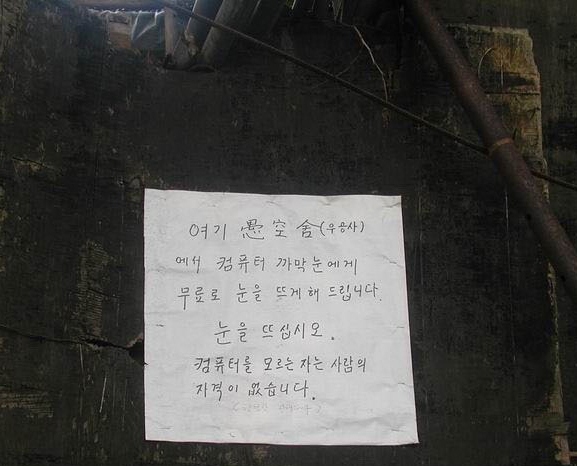 여기 愚空舍(우공사)
에서 컴퓨터 까막눈에게
무료로 눈을 뜨게 해 드립니다.
눈을 뜨십시오.
컴퓨터를 모르는 자는 사람의
자격이 없습니다.